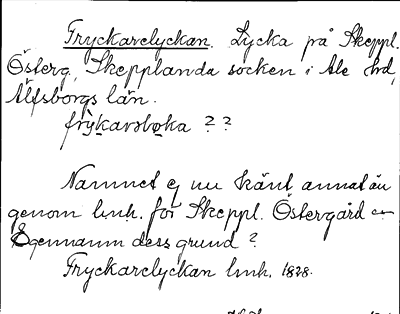 Fryckarelyckan. Lycka på Skeppl.
Österg, Skepplanda socken i Ale hd,
Älfsborgs län.
frykavsloka ??
Namnet ej nu känt annat än
genom lmh. för Skeppl. Östergård
Egennamn dess grund?
Fryckarelyckan lmh. 1828.